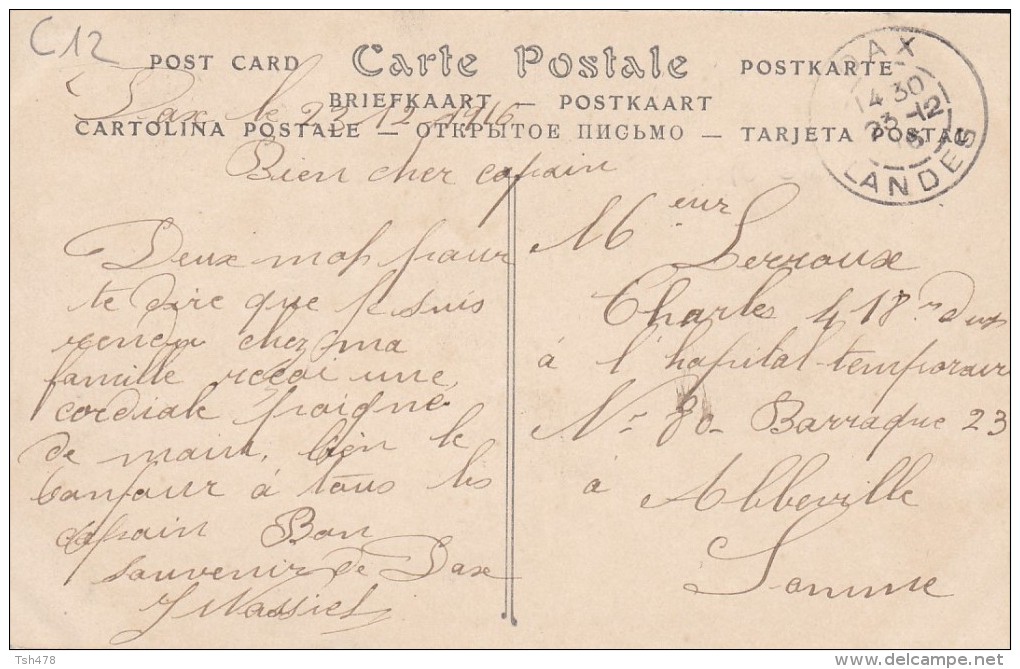 C12
POST CARD Carte Postale POSTKARTE
BRIEFKAART — POSTKAART
CARTOLINA POSTALE — ОТКРЫТОЕ ПИСЬМО — TARJETA POSTAL
DAX
14 30
23 -12
16
LANDES
Dax le 23 12 1916
Bien cher copain
Deux mots pour
te dire que je suis
rendu chez ma
famille reçoi une
cordiale poigne
de main, bien le
bonjour à tous les
copain Bon
souvenir de Dax
Meur Lerroux
Charles 418me d'inf
à l'hopital temporair
Nr 80 Barraque 23
à Abbeville
Somme
Tsh478
delcampe.net